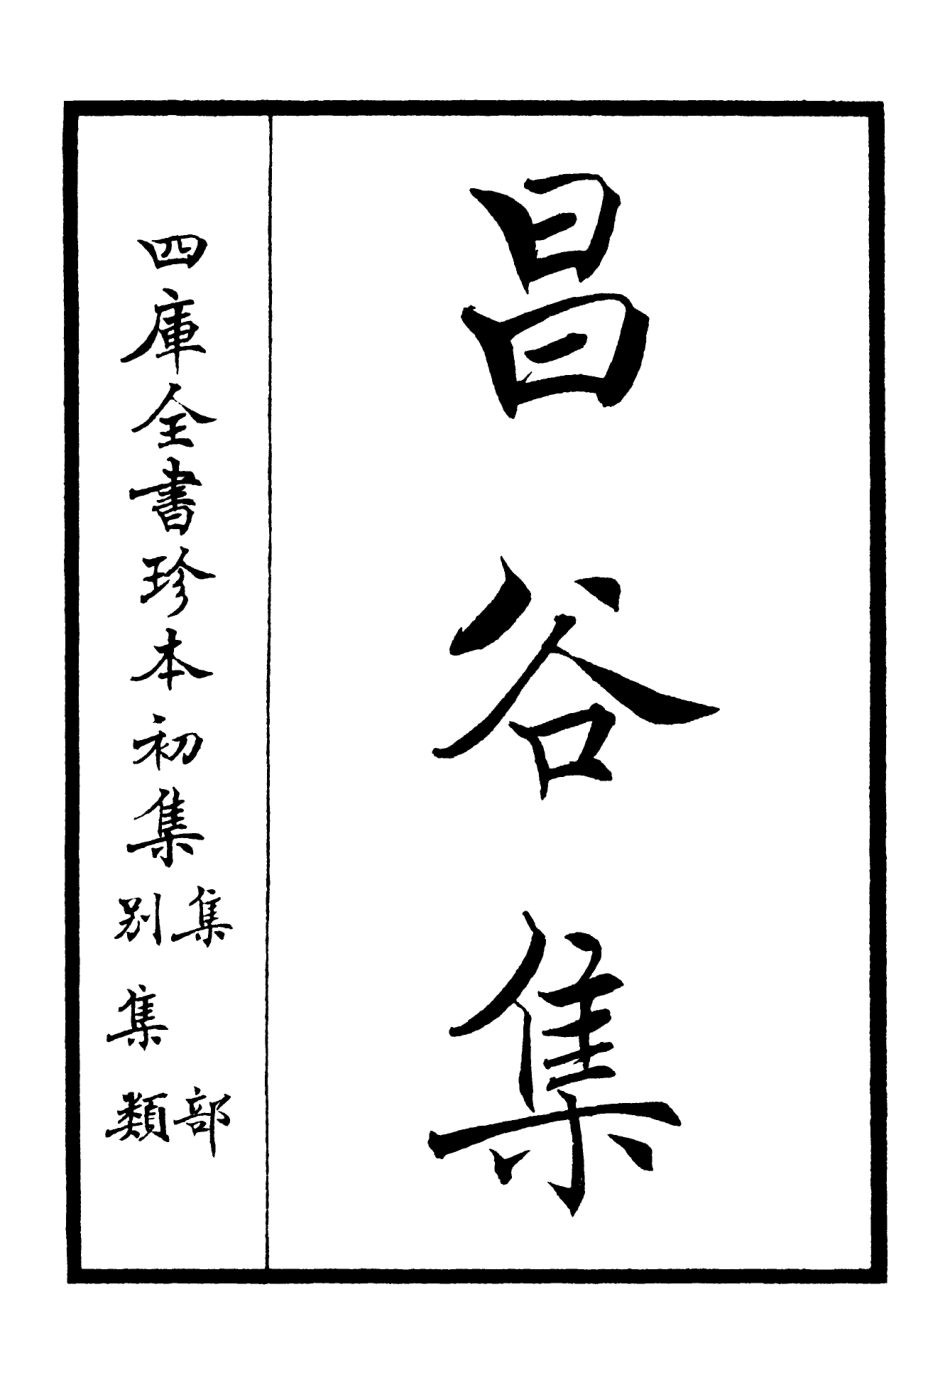 昌谷集
四庫全書珍本初集
集部
別集類